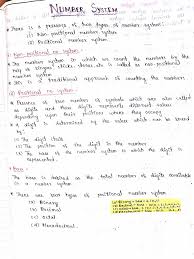 NUMBER SYSTEM
There is a presence of two types of number system:-
(i) Non-positional number system
(ii) Positional number system.
Non-positional no. system:-
The number system in which we count the numbers by the
is called as non-positional
number system.
It is a traditional approach of counting the numbers.
(ii) Positional no. system:-
Presence of few number of symbols which are also called
as digits and these digits represents different values
depending upon their position where they occupy
A digit is determined by the value which can be found
by:
(i) The digit itself
(ii) The position of the digit in the number
(iii) The base of the number system in which the digit is
represented.
Base:-
The base is defined as the total number of digits available
in a number system.
There are four types of positional number system
(i) Binary
(ii) Decimal
(iii) Octal
(iv) Hexadecimal.